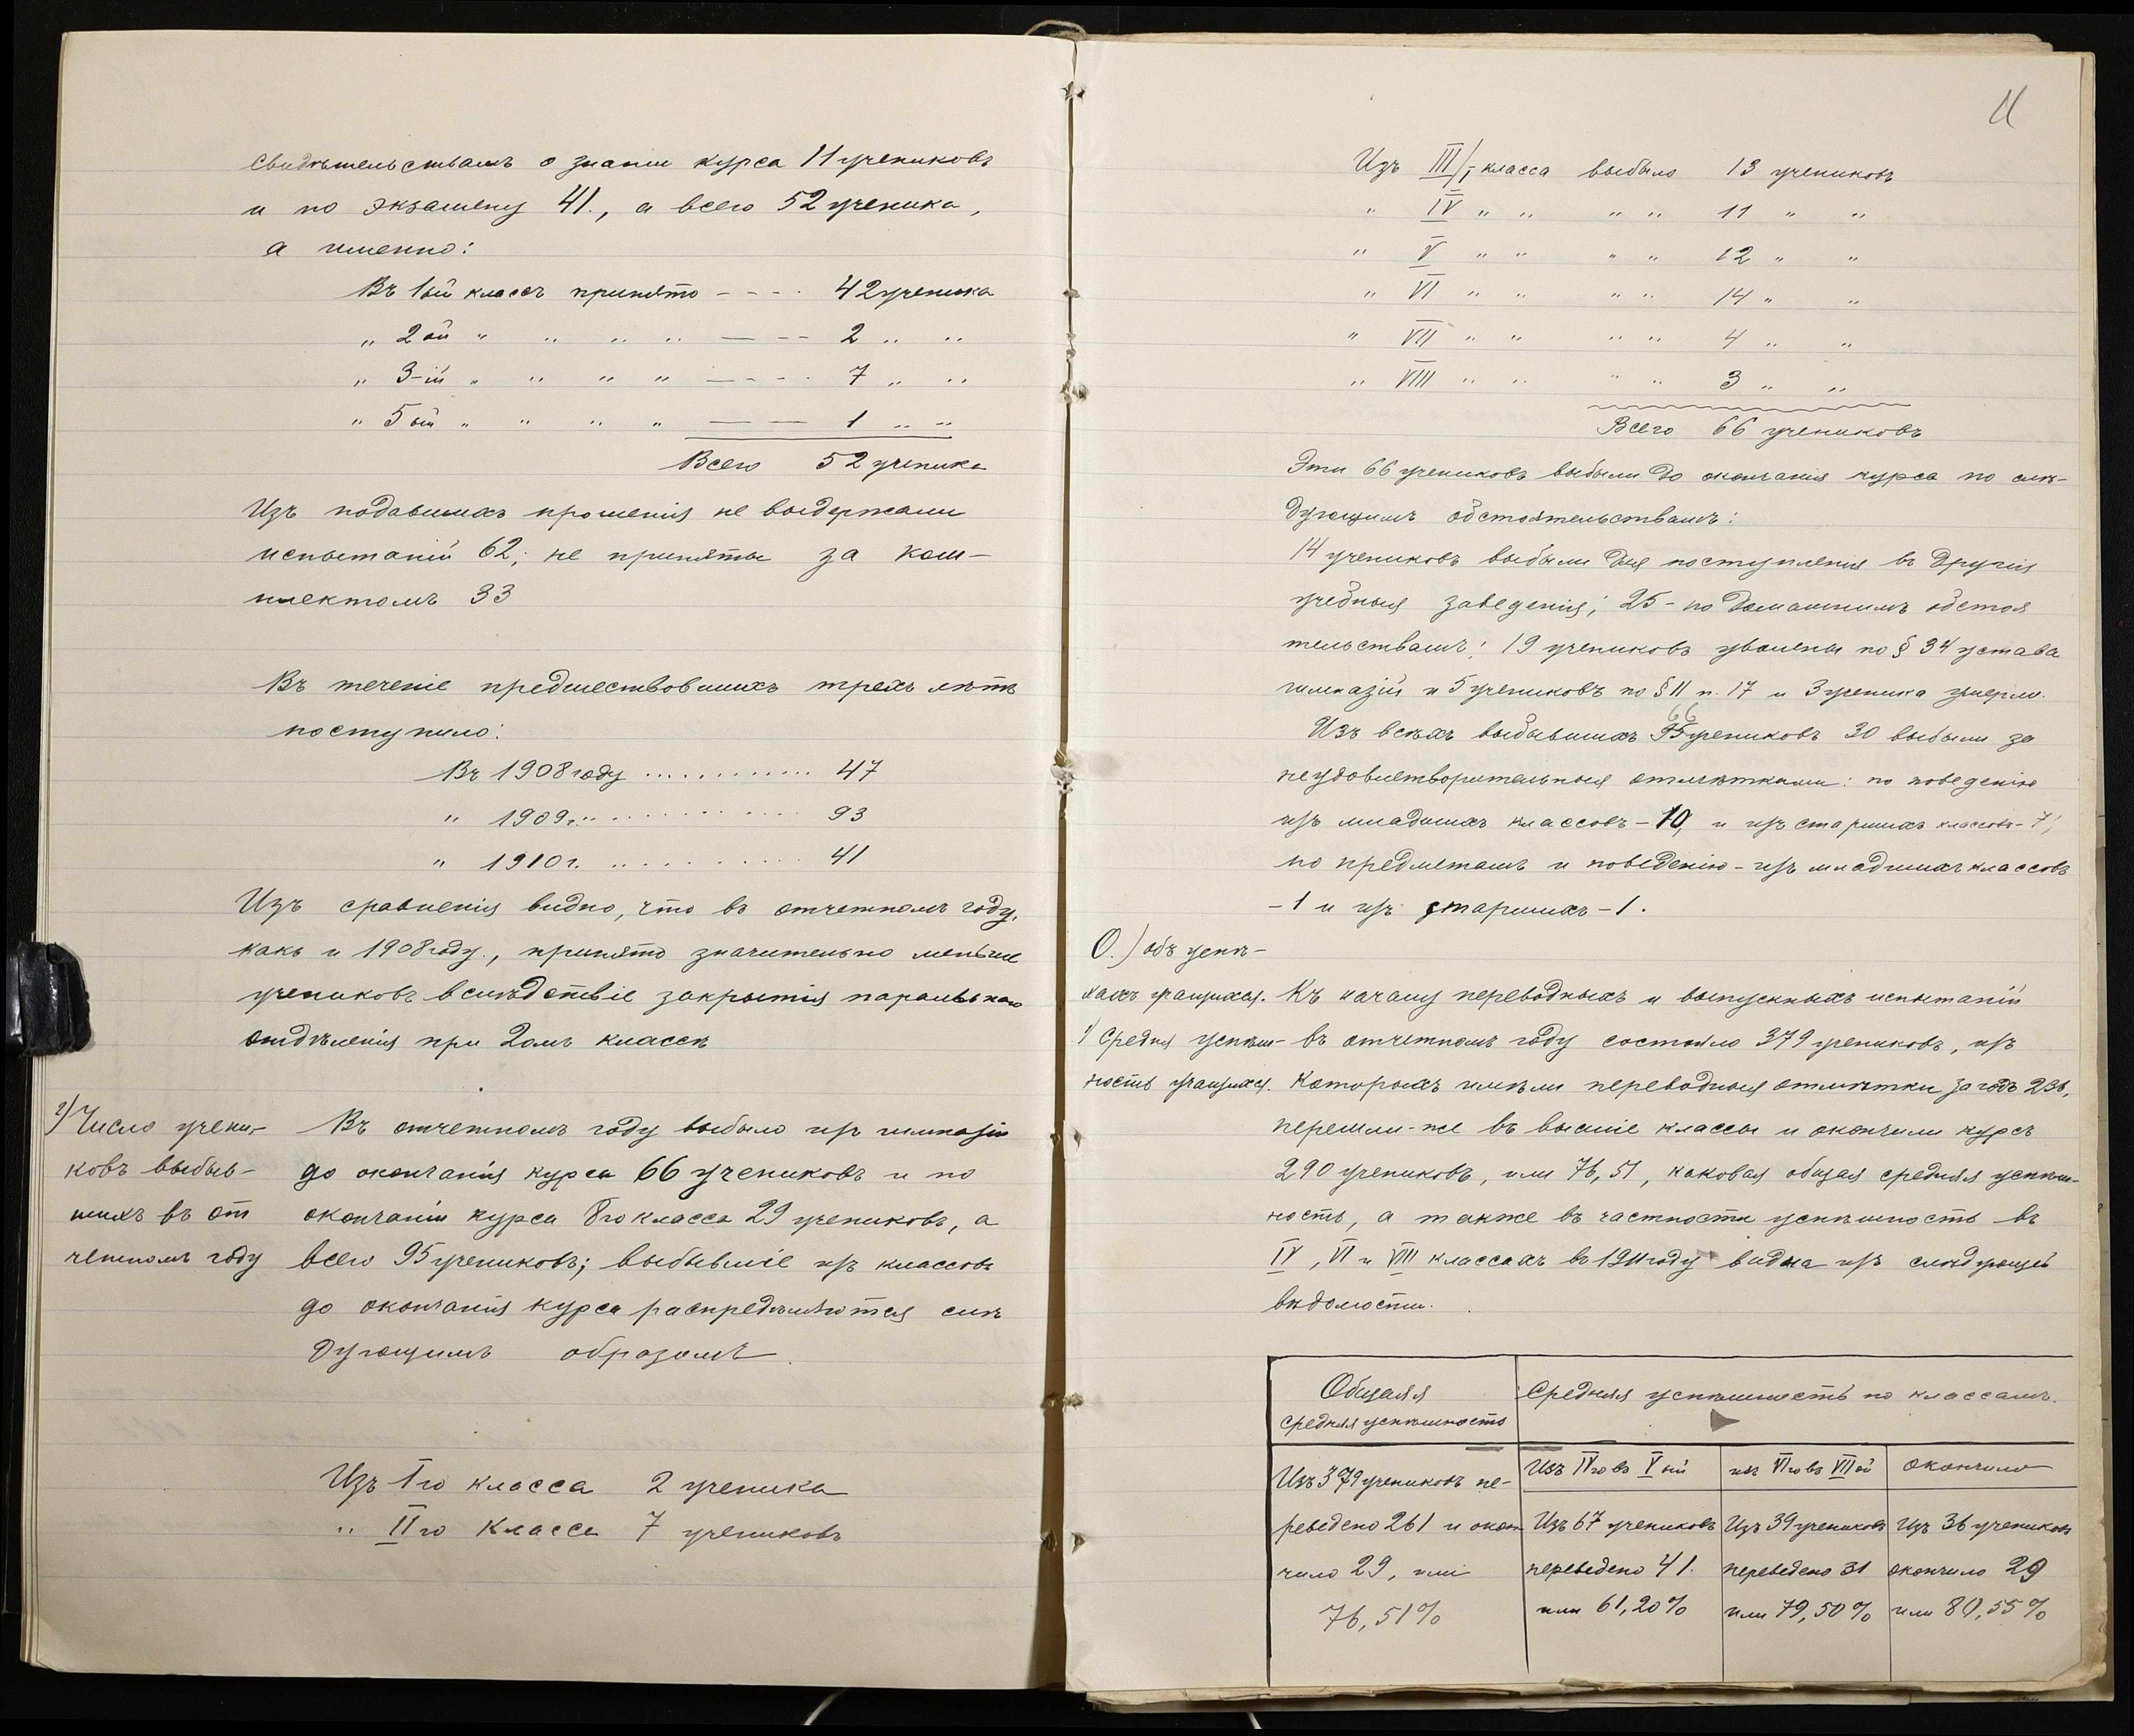 свидѣтельствамъ о знаніи курса 11 учениковъ
и по экзамену 41., а всего 52 ученика,
а именно:
Въ 1ый классъ принято - - - - 42 ученика
„ 2ой „ „ „ „ — - - 2 „ „
„ 3-ій „ „ „ „ — - - - 7 „ „
„ 5ый „ „ „ „ — — 1 „ „
Всего 52 ученика
Изъ подавшихъ прошенія не выдержали
испытаній 62; не приняты за ком-
плектомъ 33
Въ теченіе предшествовавшихъ трехъ лѣтъ
поступило:
Въ 1908 году ............ 47
„ 1909 г. ............ 93
„ 1910 г. ............ 41
Изъ сравненія видно, что въ отчетномъ году,
какъ и 1908 году., принято значительно меньше
учениковъ вслѣдствіе закрытія паральнаго
отдѣленія при 2омъ классѣ
2) Число учени- Въ отчетномъ году выбыло изъ гимназіи
ковъ выбыв- до окончанія курса 66 учениковъ и по
шихъ въ от окончаніи курса 8го класса 29 учениковъ, а
четномъ году всего 95 учениковъ; выбывшіе изъ классовъ
до окончанія курса распредѣляются слѣ
дующимъ образомъ.
Изъ Iго класса 2 ученика
„ IIго класса 7 учениковъ
11
Изъ III/- класса выбыло 13 учениковъ
„ IV „ „ „ „ 11 „ „
„ V „ „ „ „ 12 „ „
„ VI „ „ „ „ 14 „ „
„ VII „ „ „ „ 4 „ „
„ VIII „ „ „ „ 3 „ „
Всего 66 учениковъ
Эти 66 учениковъ выбыли до окончанія курса по слѣ-
дующимъ обстоятельствамъ:
14 учениковъ выбыли для поступленія въ другія
учебныя заведенія; 25 - по домашнимъ обстоя
тельствамъ; 19 учениковъ уволены по § 34 устава
гимназій и 5 учениковъ по § 11 п. 17 и 3 ученика умерли.
66
Изъ всѣхъ выбывшихъ 95 учениковъ 30 выбыли за
неудовлетворительныя отмѣтками: по поведенію
изъ младшихъ классовъ - 10, и изъ старшихъ классовъ - 7;
по предметамъ и поведенію - изъ младшихъ классовъ
- 1 и изъ старшихъ - 1.
О.) объ успѣ-
хахъ учащихся. Къ началу переводныхъ и выпускныхъ испытаній
1) Средня успѣш- въ отчетномъ году состояло 379 учениковъ, изъ
ность учащихся. которыхъ имѣли переводныя отмѣтки за годъ 236,
перешли-же въ высшіе классы и окончили курсъ
290 учениковъ, или 76,51, каковая общая средняя успѣш-
ность, а также въ частности успѣшность въ
IV, VI и VIII классахъ въ 1911 году видна изъ слѣдующей
вѣдомости.
Общая Средняя успѣшность по классамъ.
средняя успѣшность
Изъ 379 учениковъ пе- Изъ IVго въ Vый изъ VIго въ VIIой окончило
реведено 261 и окон Изъ 67 учениковъ Изъ 39 учениковъ Изъ 36 учениковъ
чило 29, или переведено 41. переведено 31 окончило 29
76,51% или 61,20% или 79,50% или 80,55%